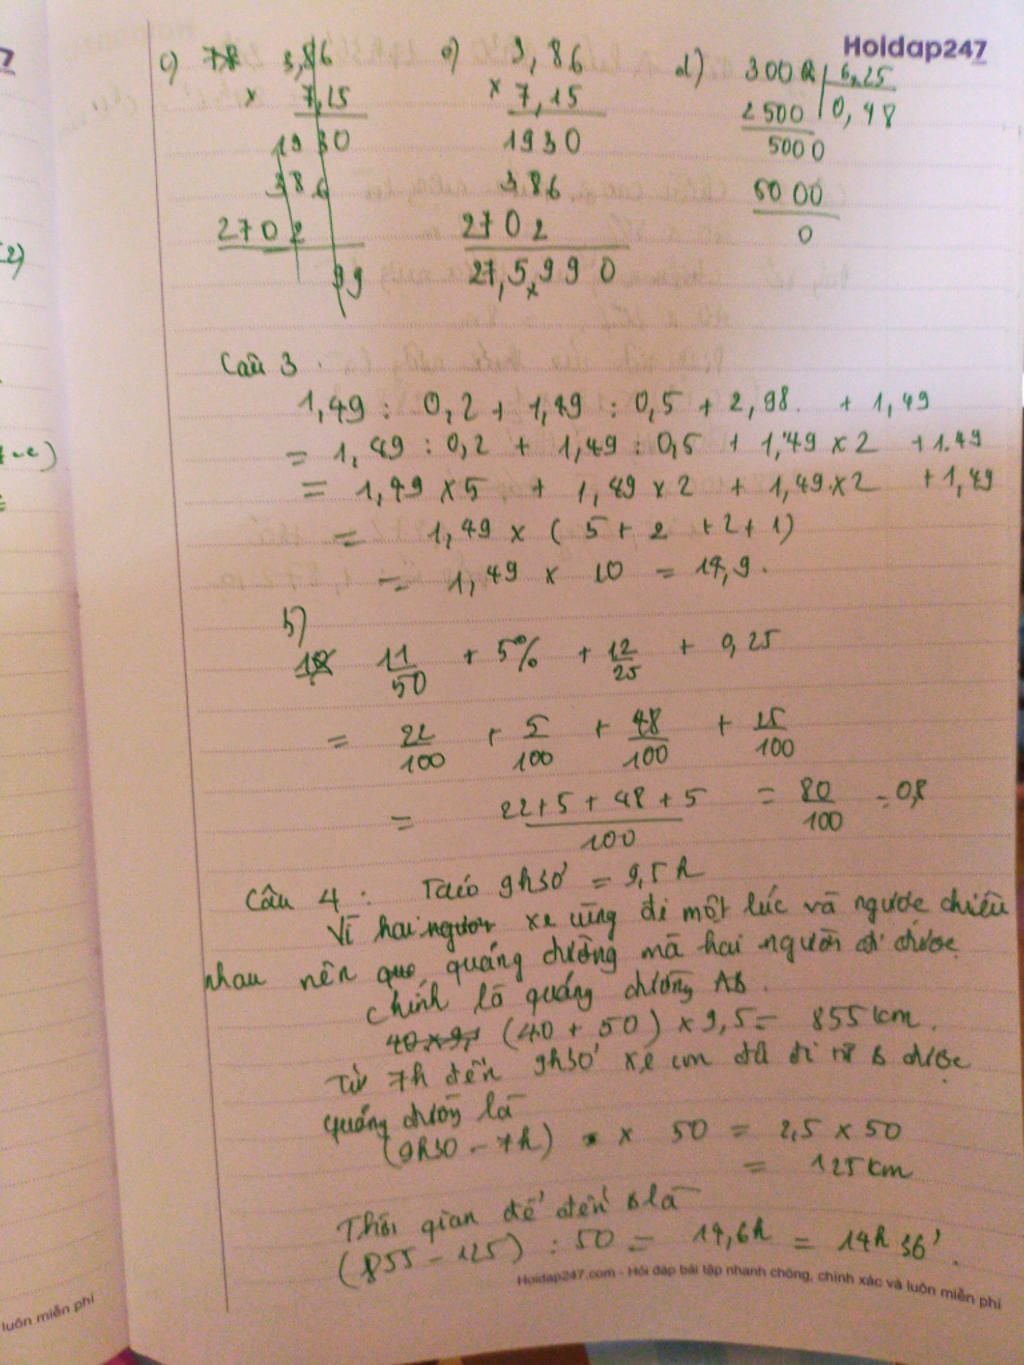 Holdap247
c) 78 3,86
× 7,15
1930
386
2702
99
c) 3,86
× 7,15
1930
386
2702
27,5990
d) 3002 6,25
2500 0,48
5000
5000
0
Câu 3
1,49 : 0,2 + 1,49 : 0,5 + 2,98 + 1,49
= 1,49 : 0,2 + 1,49 : 0,5 + 1,49 × 2 + 1.49
= 1,49 × 5 + 1,49 × 2 + 1,49 × 2 + 1,49
= 1,49 × ( 5 + 2 + 2 + 1)
= 1,49 × 10 = 14,9.
b)
11/50 + 5% + 12/25 + 0,25
= 22/100 + 5/100 + 48/100 + 25/100
= 22+5+48+5/100 = 80/100 = 0,8
Câu 4 : 9h30' = 9,5h
Vì hai người xe cùng đi một lúc và ngược chiều
nhau nên quãng đường mà hai người đi được
chính là quãng đường AB.
40×9, (40 + 50) × 9,5 = 855 km.
Từ 7h đến 9h30' xe con đã đi từ B được
quãng đường là
(9h30 - 7h) × 50 = 2,5 × 50
= 125 km
Thời gian để đến B là
(855 - 125) : 50 = 14,6h = 14h 36'.
Holdap247.com - Hỏi đáp bài tập nhanh chóng, chính xác và luôn miễn phí
luôn miễn phí